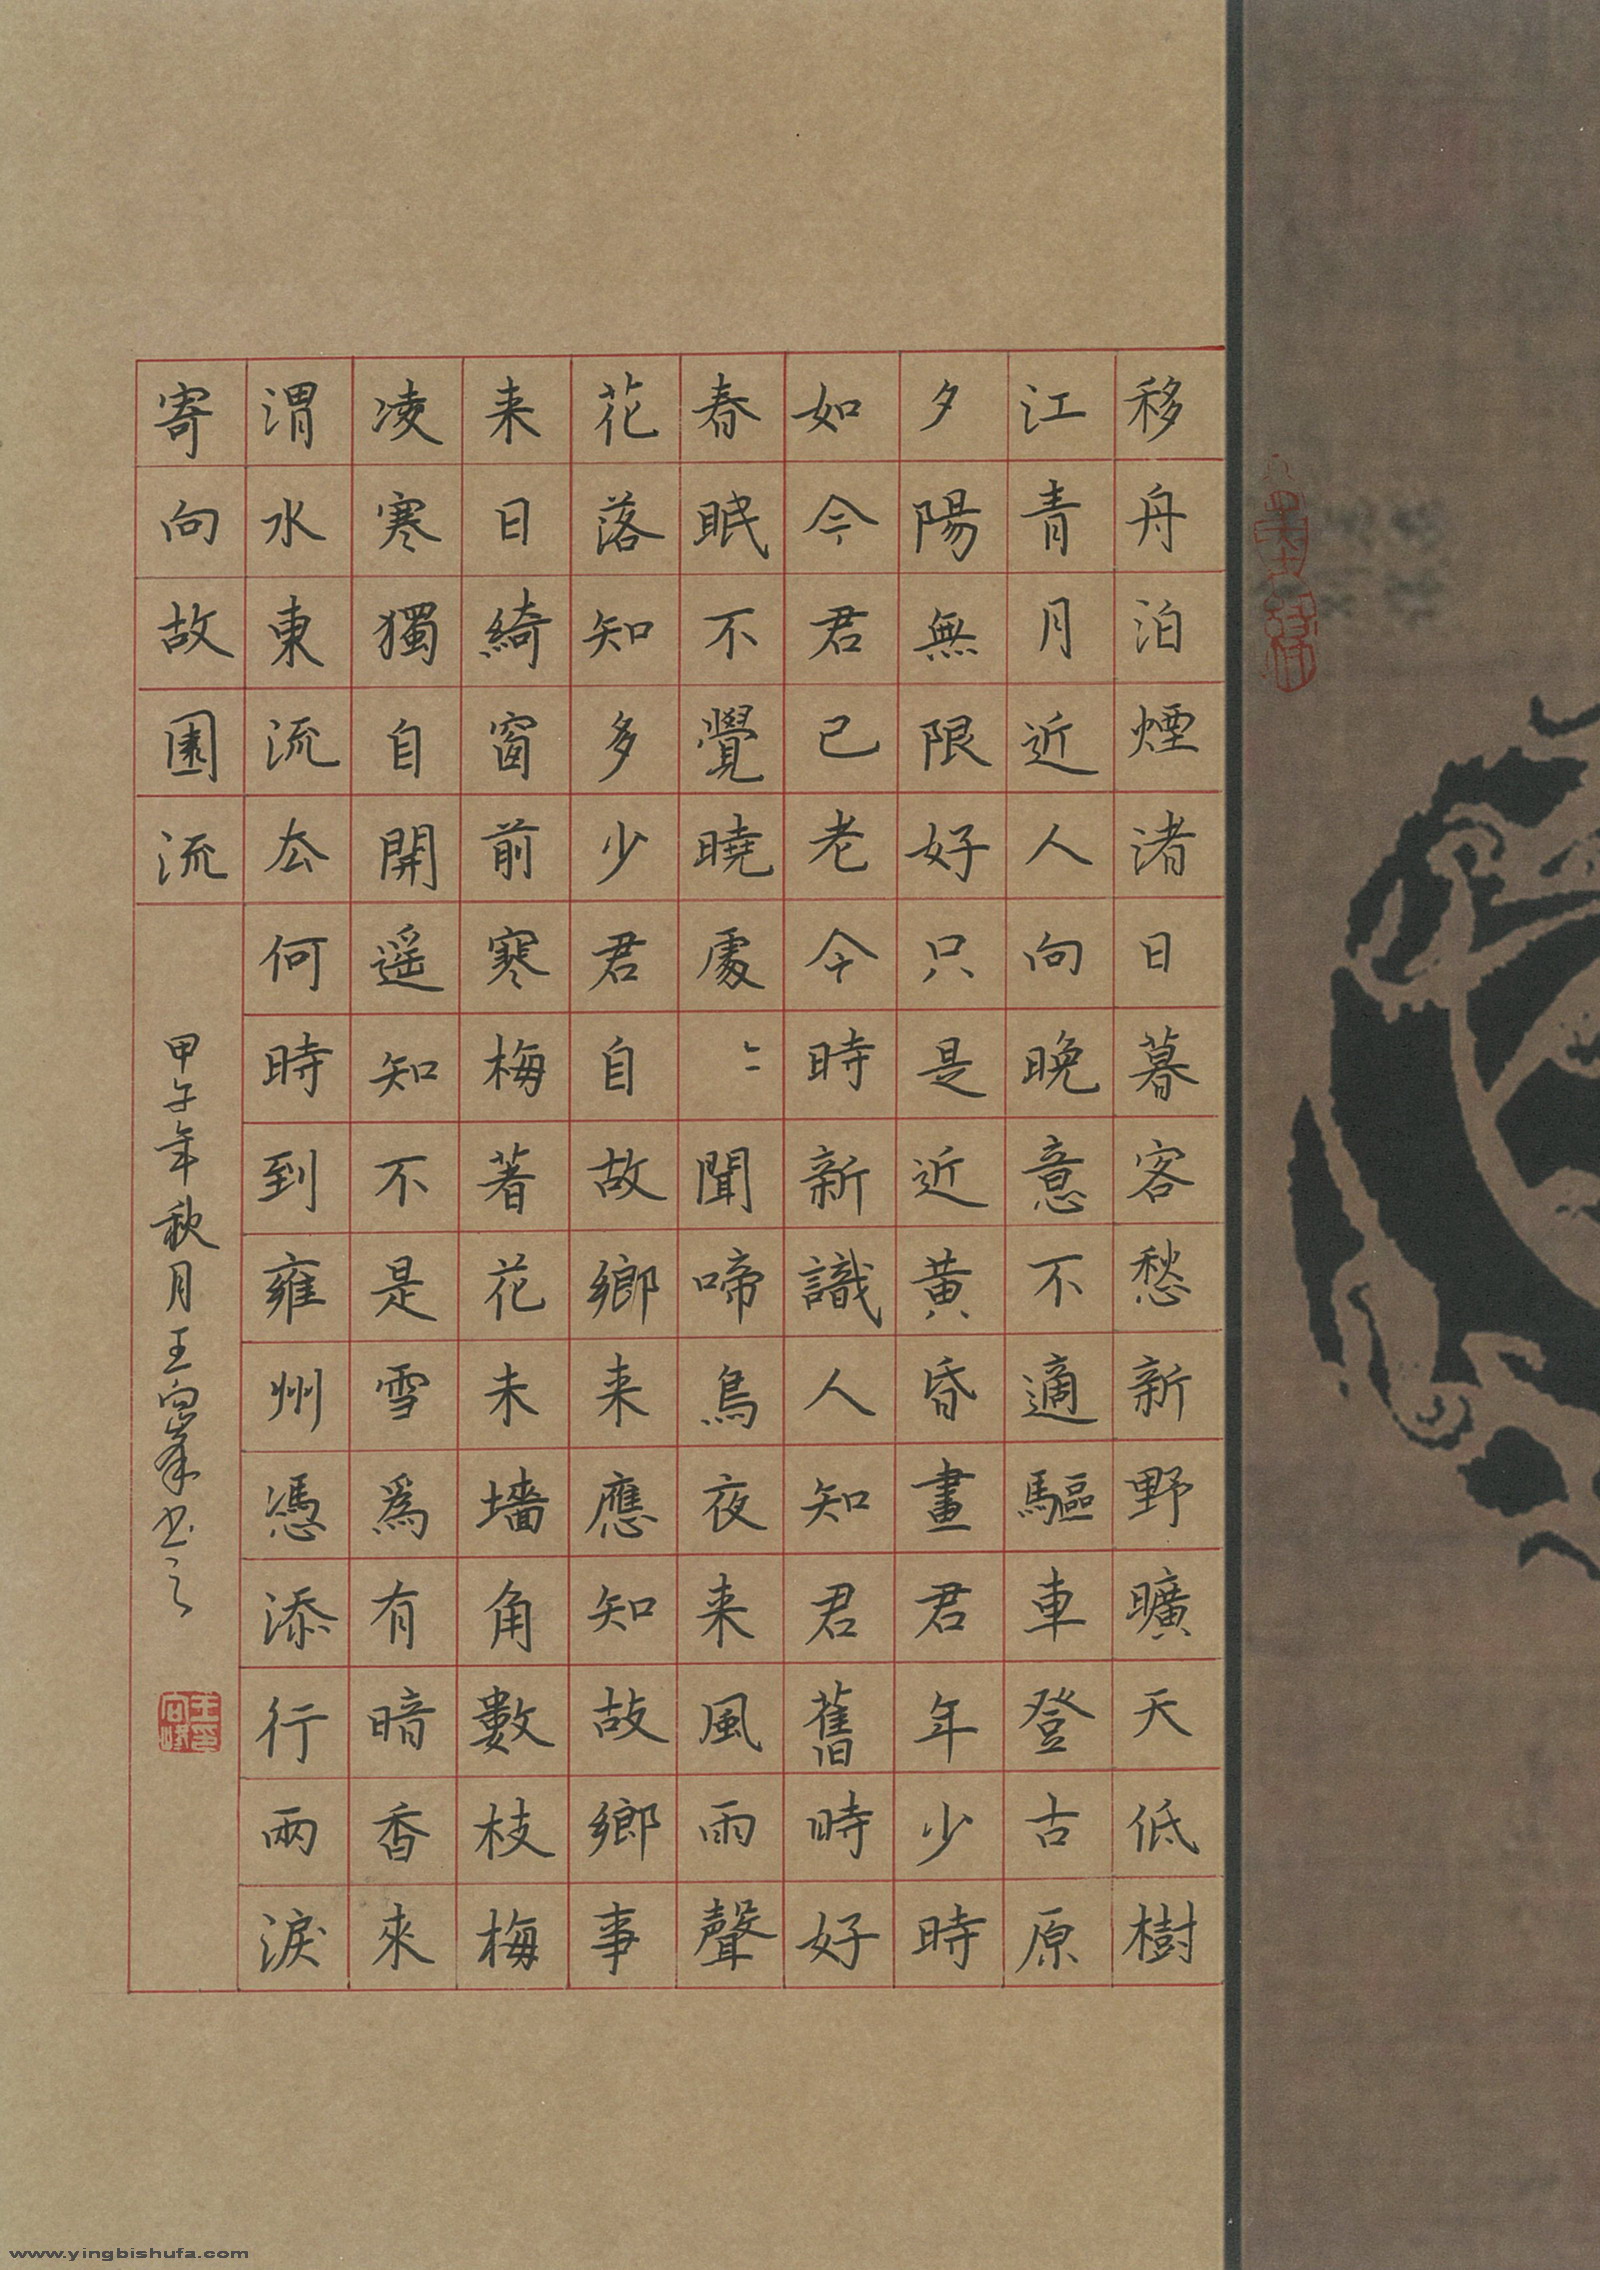 移舟泊煙渚日暮客愁新野曠天低樹
江青月近人向晚意不適驅車登古原
夕陽無限好只是近黃昏畫君年少時
如今君已老今時新識人知君舊時好
春眠不覺曉處〻聞啼鳥夜来風雨聲
花落知多少君自故鄉来應知故鄉事
来日綺窗前寒梅著花未墻角數枝梅
凌寒獨自開遥知不是雪爲有暗香來
渭水東流厺何時到雍州慿添行兩淚
寄向故園流
甲午年秋月王向峯书之
www.yingbishufa.com